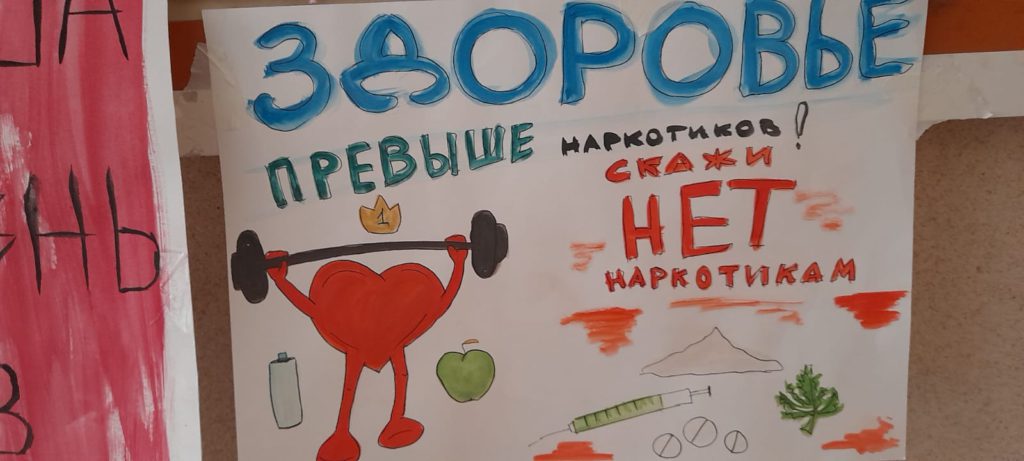 ЗДОРОВЬЕ
ПРЕВЫШЕ НАРКОТИКОВ!
СКАЖИ
НЕТ
НАРКОТИКАМ
1